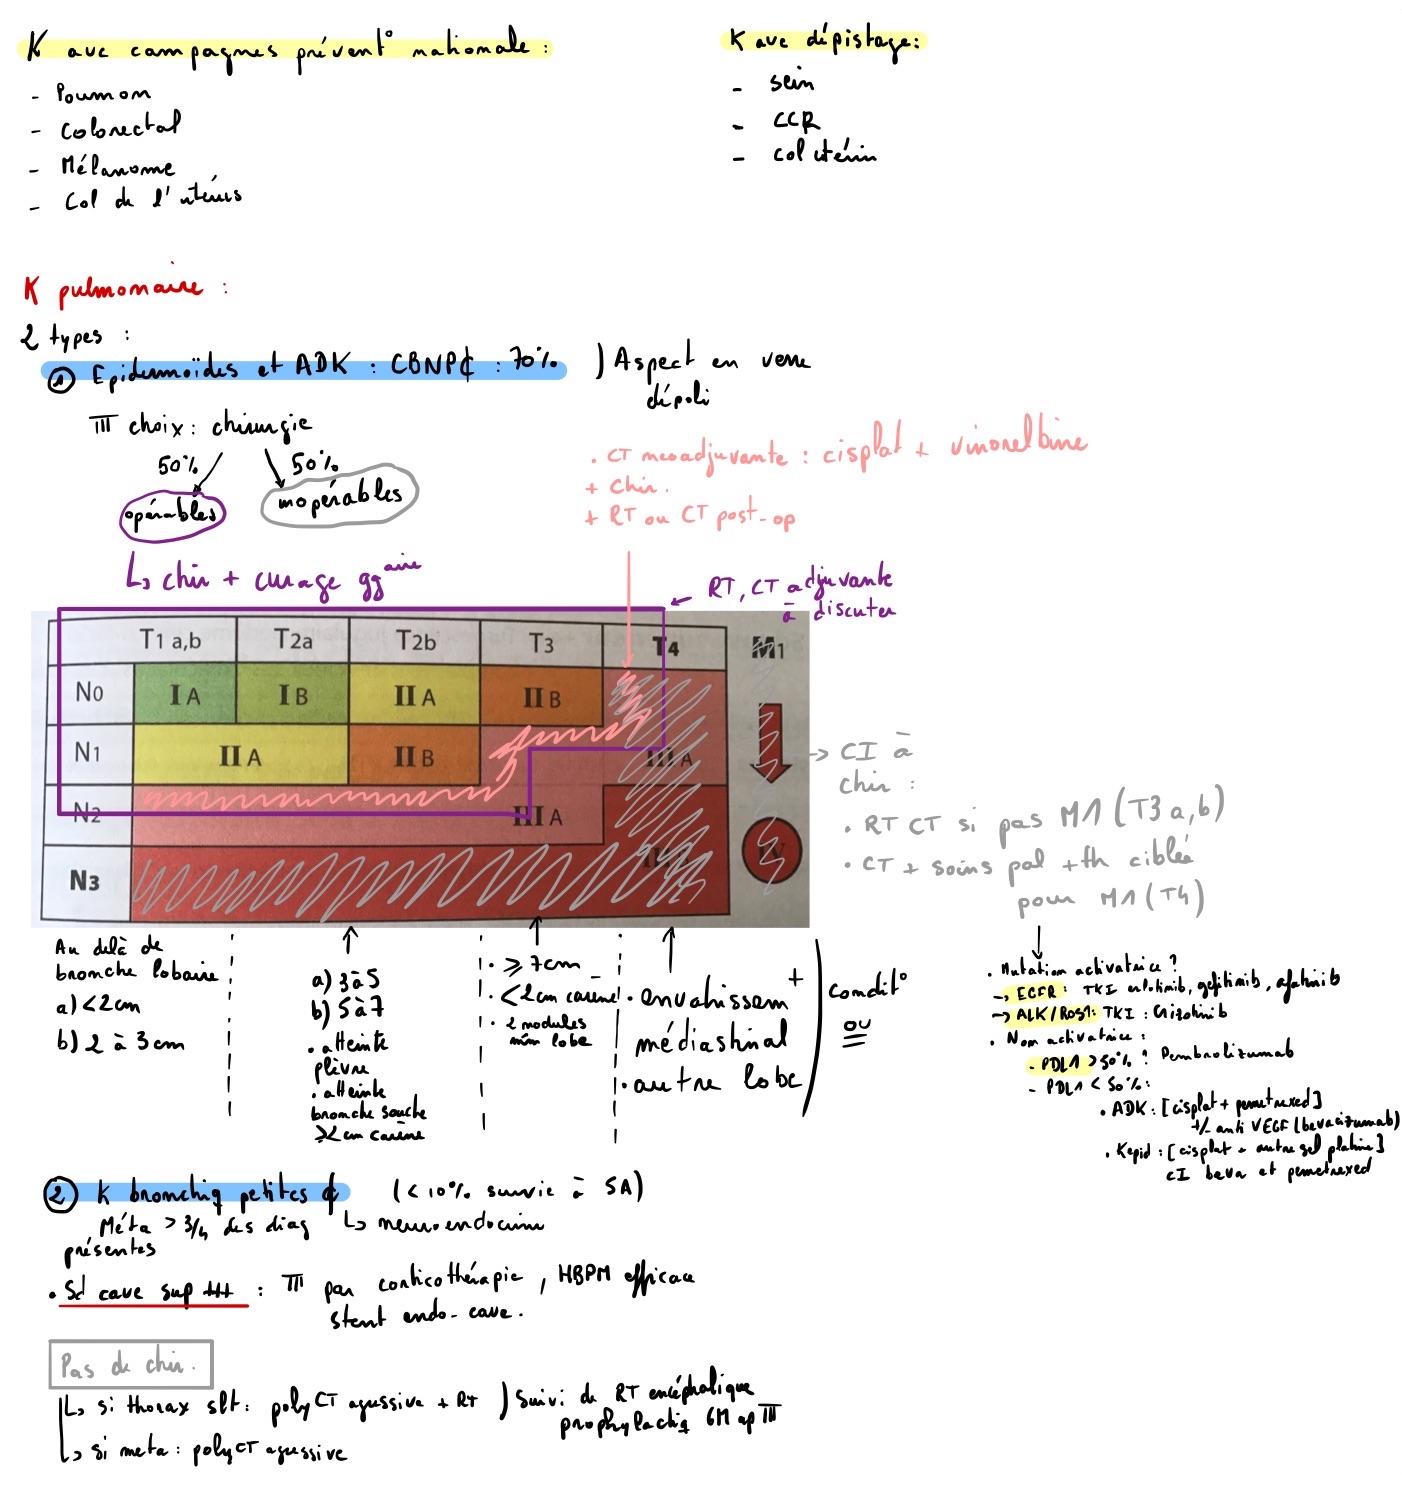 K avec campagnes prévent° nationale :
- Poumon
- Colorectal
- Mélanome
- Col de l'utérus
K avec dépistage :
- sein
- CCR
- col utérin
K pulmonaire :
2 types :
① Epidermoïdes et ADK : CBNP₵ : 70%
) Aspect en verre
dépoli
TTT choix : chirurgie
50%
50%
opérables
inopérables
↳ chir + curage ggaire
. CT neoadjuvante : cisplat + vinorelbine
+ chir.
+ RT ou CT post-op
← RT, CT adjuvante
à discuter
T1 a,b T2a T2b T3 T4 M1
N0 I A I B II A II B
N1 II A II B III A
N2 III A
N3
→ CI à
chir :
• RT CT si pas M1 (T3 a,b)
• CT + soins pal + th ciblée
pour M1 (T4)
Au delà de
bronche lobaire
a) < 2cm
b) 2 à 3cm
a) 3 à 5
b) 5 à 7
. atteinte
plèvre
. atteinte
bronche souche
≥2cm carène
. ≥ 7cm
. < 2cm carène
. 2 nodules
mm lobe
. envahissem+
médiastinal
. autre lobe
condit°
ou
. Mutation activatrice ?
→ EGFR : TKI erlotinib, gefitinib, afatinib
→ ALK/Ros1 : TKI : Crizotinib
. Non activatrice :
- PDL1 > 50% : Pembrolizumab
- PDL1 < 50% :
. ADK : [cisplat + pemetrexed]
+/- anti VEGF (bevacizumab)
. Kepid : [cisplat + autre sel platine]
CI beva et pemetrexed
② K bronchiq petites ₵ (< 10% survie à 5A)
Méta > 3/4 des diag
présentes
↳ neuroendocrine
. Sd cave sup +++ : TTT par corticothérapie, HBPM efficace
Stent endo-cave.
Pas de chir.
↳ si thorax slt : poly CT agressive + RT
↳ si meta : poly CT agressive
) Suivi de RT encéphalique
prophylactiq 6M ap TTT